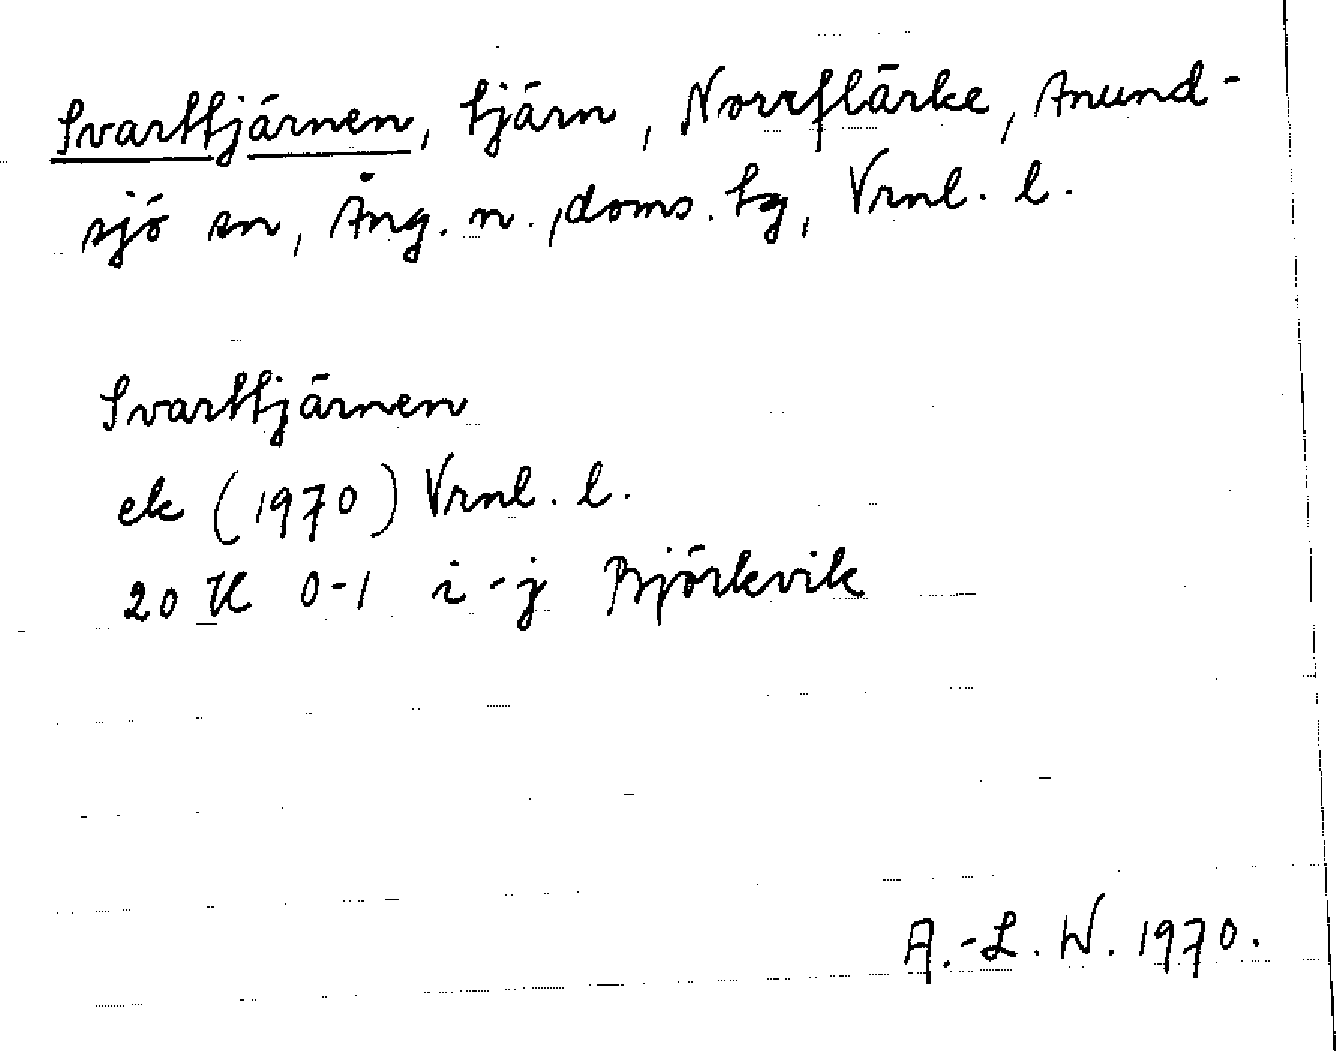 Svarttjärnen, tjärn, Norrflärke, Anund-
sjö sn, Ång. n., doms. tg, Vrnl. l.
Svarttjärnen
ek (1970) Vrnl. l.
20 K 0-1 i-j Björkvik
A.-L. W. 1970.